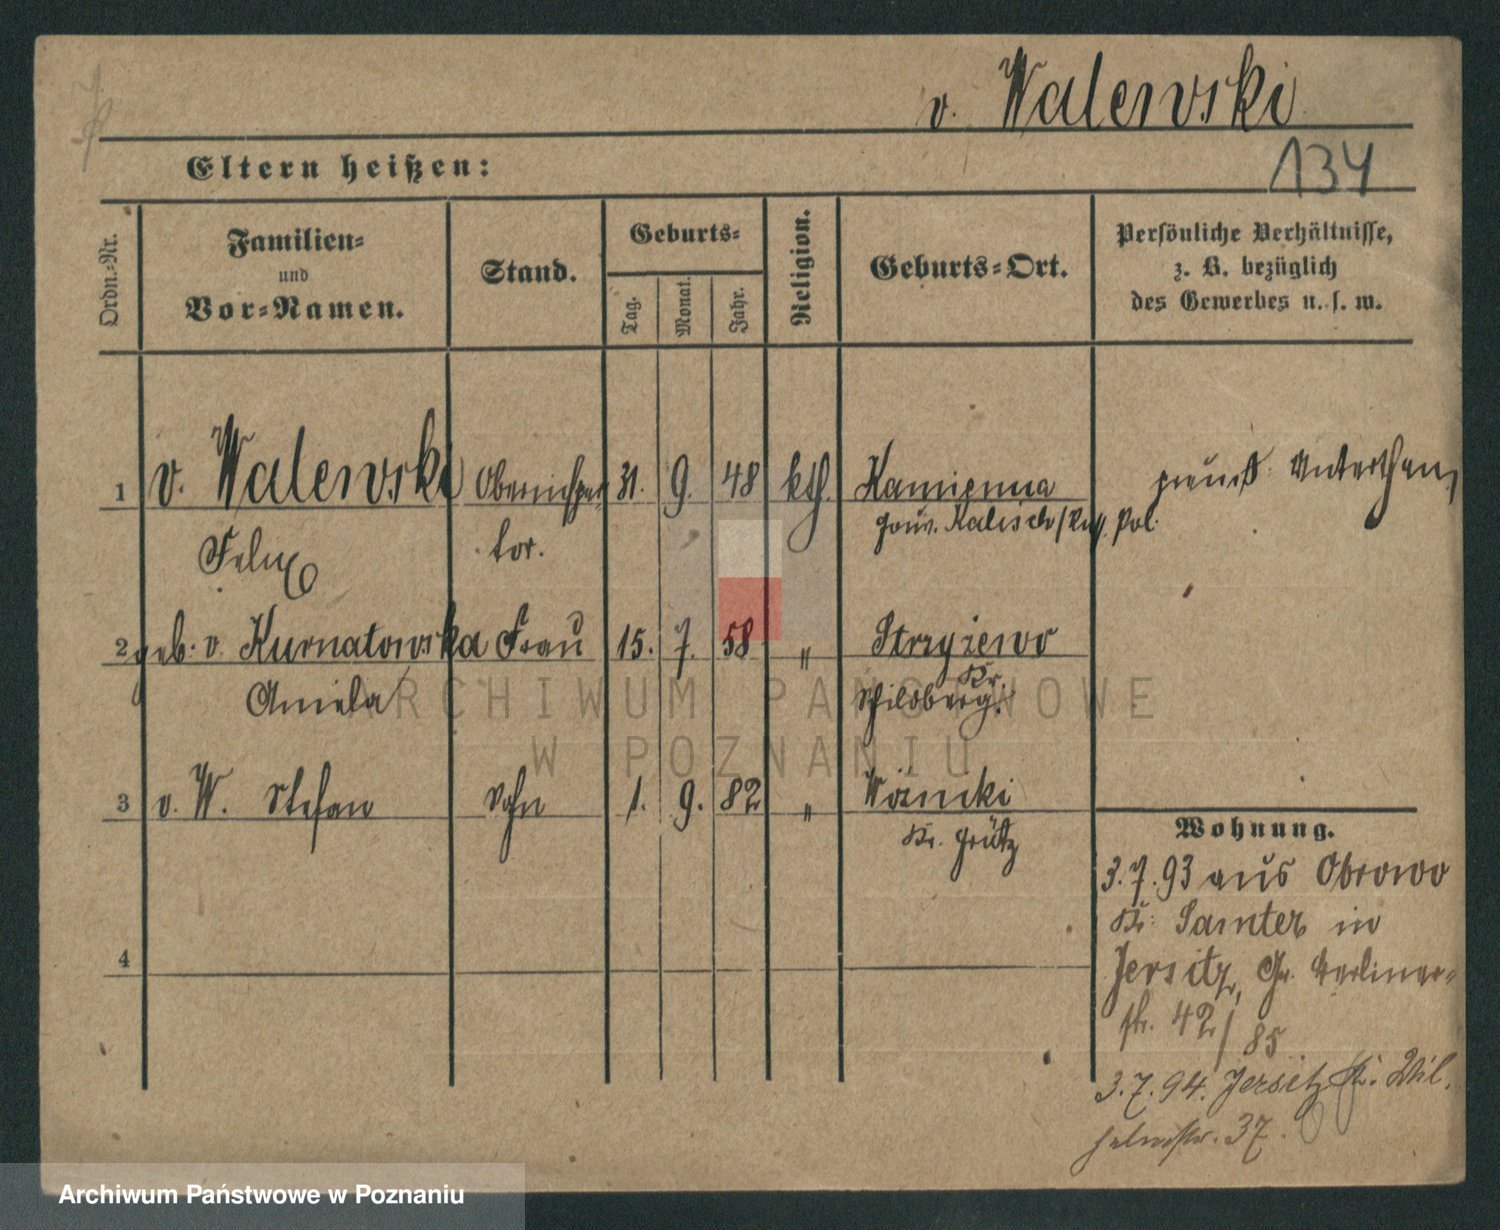 v. Walewski
134
Eltern heißen:
Ordn.-Nr.
Familien- und Vor-Namen.
Stand.
Geburts-
Tag.
Monat.
Jahr.
Religion.
Geburts-Ort.
Persönliche Verhältnisse,
z. B. bezüglich
des Gewerbes u. s. w.
1 v. Walewski Oberinspek 31. 9. 48 kth. Kamienna preuß. Unterthan
Felix tor. Gouv. Kalisch/Russ. Pol.
2 geb. v. Kurnatowska Frau 15. 7. 58 " Strzyżewo
Aniela Kr. Schildberg.
3 v. W. Stefan Sohn 1. 9. 82 " Wozniki
Kr. Grätz
Wohnung.
3.7.93 aus Obrowo
Kr. Samter in
Jersitz, Gr. Berliner-
str. 42/85
4
3.7.94. Jersitz Kl. Wil.
helmstr. 37.
ARCHIWUM PAŃSTWOWE
W POZNANIU
Archiwum Państwowe w Poznaniu